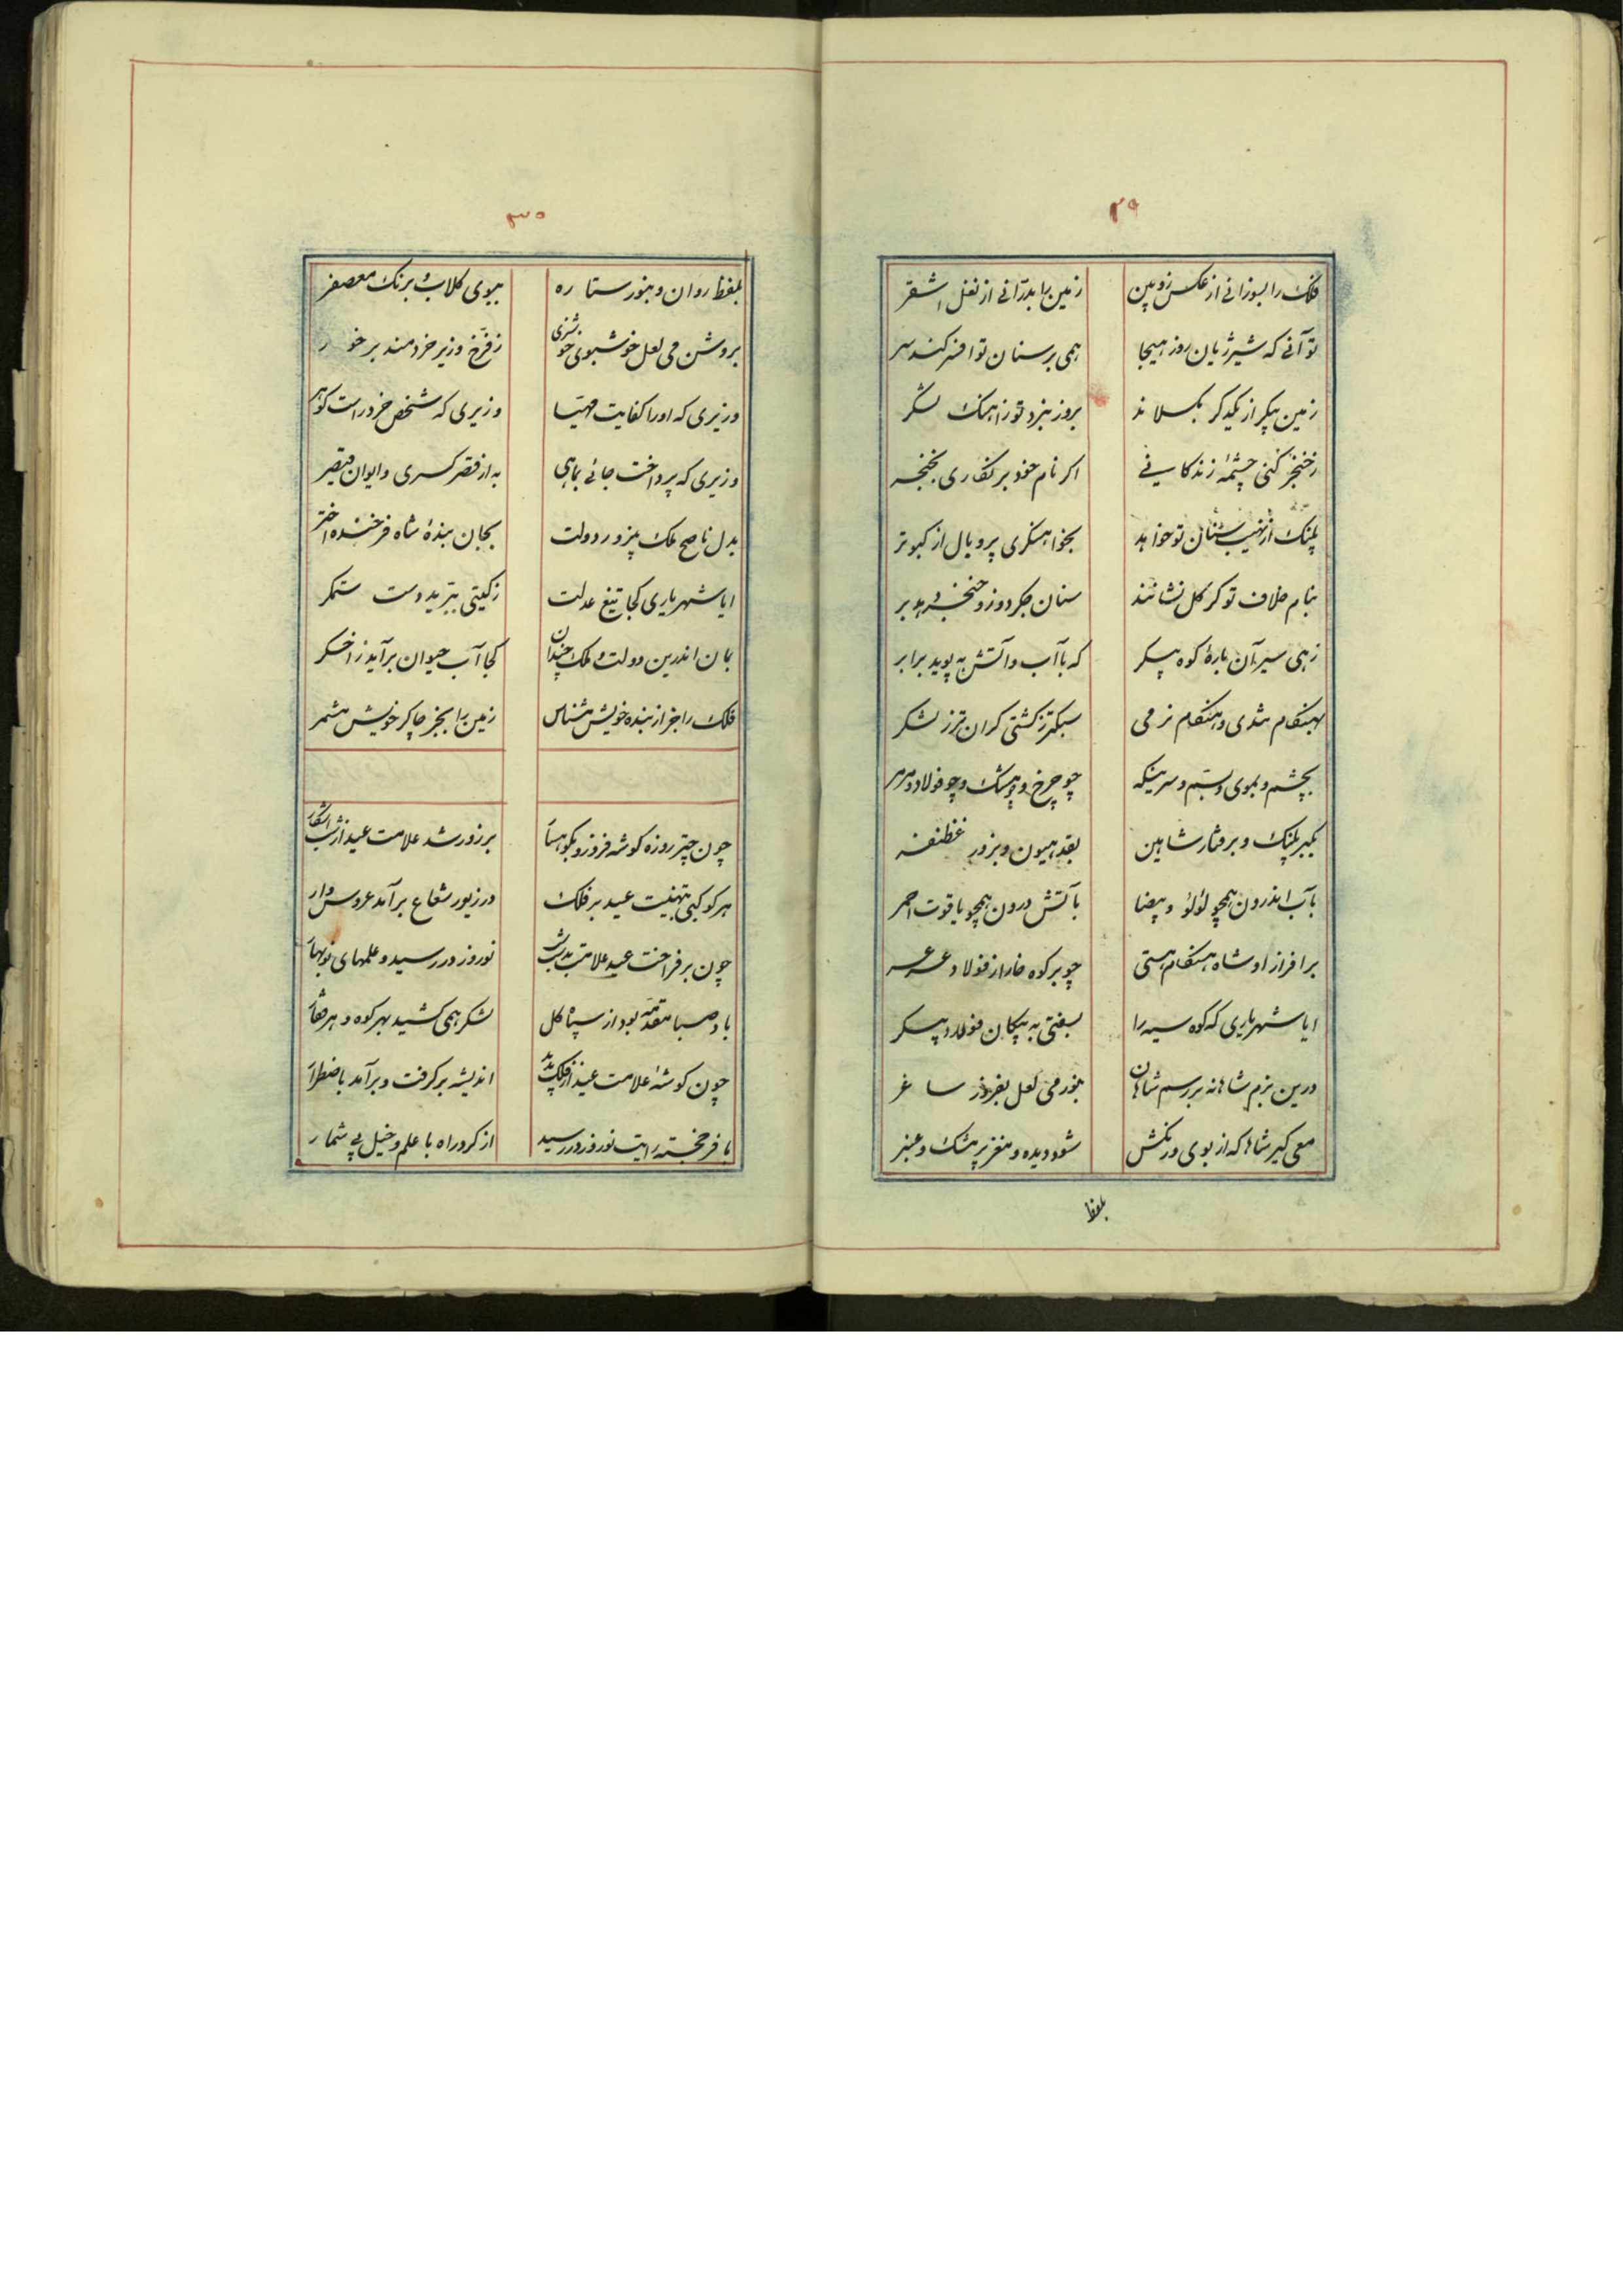 ۲۹
فلک را بسوزانی از عکس زوپین زمین را بدرّانی از نعل اشقر
تو آنی که شیر ژیان روز هیجا همی بر سنان تو افسر کند سر
زمین پیکر از یکدگر بگسلاند بروز نبرد تو زاهنگ لشگر
ز خنجر کنی چشمهٔ زندگانی اگر نام خود برنگاری بخنجر
پلنک از نهیب سنان تو خواهد بخواهشگری پر و بال از کبوتر
بنام خلاف تو گر گل نشانند سنان جگردوز و خنجر دهد بر
زهی سیر آن بارهٔ کوه پیکر که با آب و آتش به پوید برابر
بهنگام تندی و هنگام نرمی سبکتر ز کشتی گران تر ز لنگر
بچشم و بموی و بسم و سرینگه چو چرخ و چو مشک و چو فولاد و مرمر
بکبر پلنک و برفتار شاهین بقد هیون و بزور غظنفر
بآب اندرون همچو لؤلؤ و بیضا بآتش درون همچو یاقوت احمر
بر افراز او شاه هنگام هستی چو بر کوه خارا ز فولاد عرعر
ایا شهریاری که کوه سیه را بسفتی به پیکان فولاد پیکر
درین بزم شاهانه بر رسم شاهان بنور می لعل بفروز ساغر
می گیر شاها که از بوی و رنگش شود دیده و مغز پر مشک و عنبر
بلفظ
۳۰
بلفظ روان و بنور ستاره ببوی کلاب و برنک معصفر
بروشن می لعل خوشبوی خوشتری ز فرّخ وزیر خردمند بر خور
وزیری که او را کفایت مهیّا وزیری که شخص خرد راست گوهر
وزیری که پرداخت جائی بماهی به از قصر کسری و ایوان قیصر
بدل ناصح ملک پرور دولت بجان بندهٔ شاه فرخنده اختر
ایا شهریاری کجا تیغ عدلت ز کیتی ببرید دست ستمکر
بمان اندرین دولت و ملک چندان کجا آب حیوان برآید ز اخگر
فلک را جز از بنده خویش مشناس زمین را بجز چاکر خویش مشمر
چون چتر روزه گوشه فروزد بکوهسار بر زور شد علامت عید از شب آشکار
هر کوکبی بتهنیت عید بر فلک در زیور شعاع برآمد عروس وار
چون بر فراخت عید علامت بدست شب نوروز در رسید و علمهای نوبهار
باد صبا مقدمه بود از سپاه کل لشکر همی کشید بهر کوه و هر قفار
چون گوشهٔ علامت عید از فلک بدید اندیشه برگرفت و برآمد باضطرار
با فر خجسته رایت نوروز در رسید از کرد راه با علم و خیل بی شمار